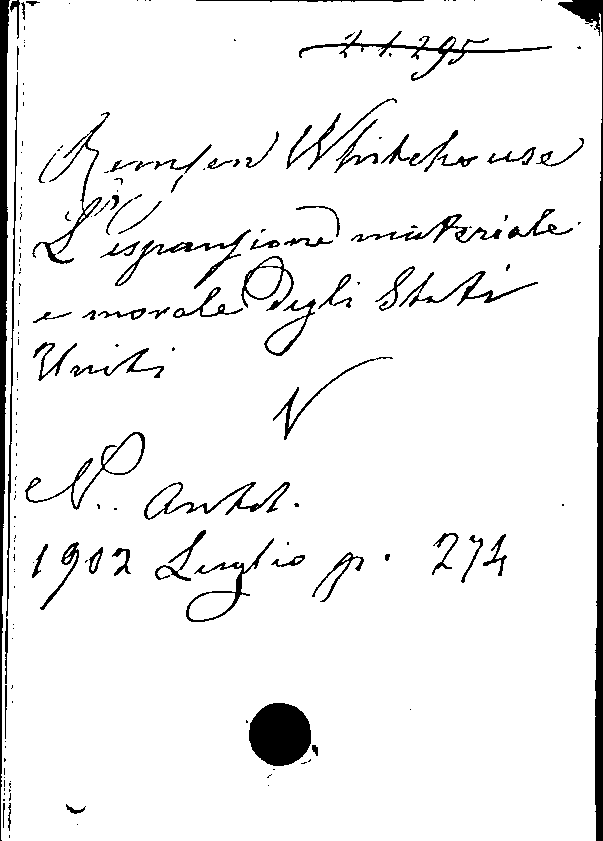 2.1.295
Remsen Whitehouse
L'espansione materiale
e morale degli Stati
Uniti
N. Antol.
1902 Luglio p. 274